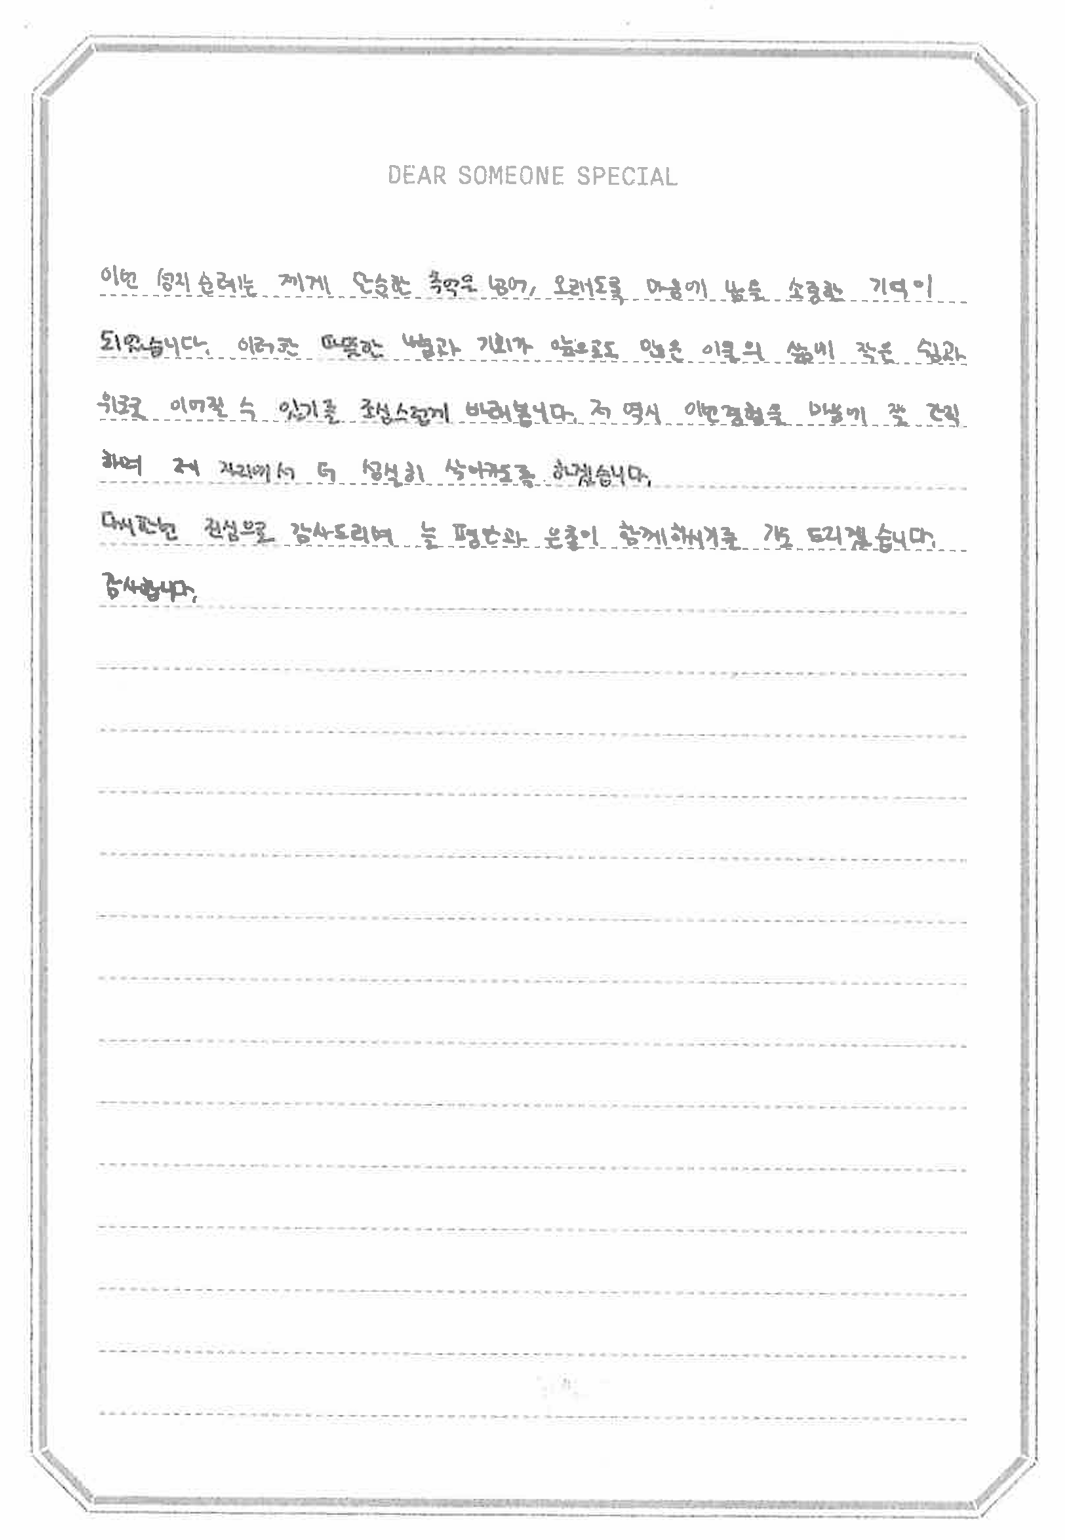 DEAR SOMEONE SPECIAL
이번 성지 순례는 제게 단순한 추억을 넘어, 오래도록 마음에 남을 소중한 기억이
되었습니다. 이러한 따뜻한 나눔과 기회가 앞으로도 많은 이들의 삶에 작은 쉼과
위로로 이어질 수 있기를 조심스럽게 바래봅니다. 저 역시 이번경험을 마음에 잘 간직
하며 제 자리에서 더 성실히 살아가도록 하겠습니다.
다시한번 진심으로 감사드리며 늘 평안과 은총이 함께하시기를 기도 드리겠습니다.
감사합니다.